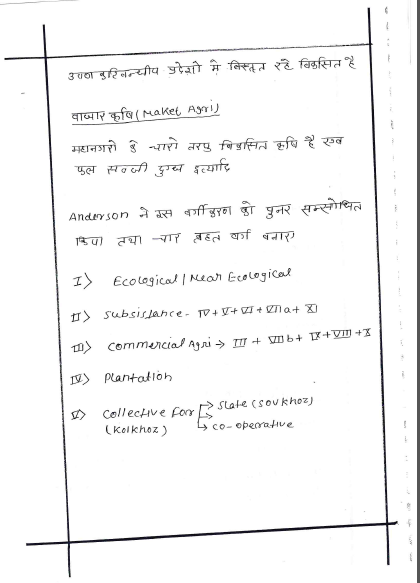 उष्ण कटिबन्धीय प्रदेशो मे विस्तृत रहे विकसित है
बाजार कृषि (Maket Agri)
महानगरो के चारो तरफ विकसित कृषि है एव
फुल सब्जी दुग्ध इत्यादि
Anderson ने इस वर्गीकरण को पुनर सन्सोधित
किया तथा चार बृहत वर्ग बनाए
I> Ecological / Near Ecological
II> Subsistance - IV + V + VI + VIIa + XI
III> Commercial Agri → III + VIIb + IX + VIII + X
IV> Plantation
V> Collective Far → State (Sovkhoz)
(Kolkhoz) → Co-operative